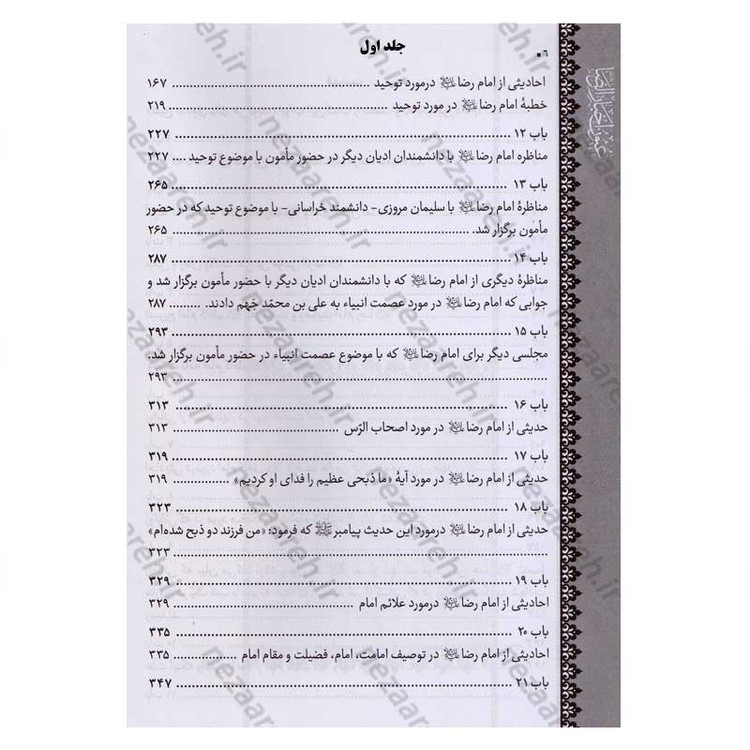 جلد اول
۶
عیون اخبار الرضا
احادیثی از امام رضا علیه السلام درمورد توحید ........ ۱۶۷
خطبهٔ امام رضا علیه السلام در مورد توحید ........ ۲۱۹
باب ۱۲ ........ ۲۲۷
مناظره امام رضا علیه السلام با دانشمندان ادیان دیگر در حضور مأمون با موضوع توحید .... ۲۲۷
باب ۱۳ ........ ۲۶۵
مناظرهٔ امام رضا علیه السلام با سلیمان مروزی- دانشمند خراسانی- با موضوع توحید که در حضور
مأمون برگزار شد. ........ ۲۶۵
باب ۱۴ ........ ۲۸۷
مناظرهٔ دیگری از امام رضا علیه السلام که با دانشمندان ادیان دیگر با حضور مأمون برگزار شد و
جوابی که امام رضا علیه السلام در مورد عصمت انبیاء به علی بن محمّد جَهم دادند. ........ ۲۸۷
باب ۱۵ ........ ۲۹۳
مجلسی دیگر برای امام رضا علیه السلام که با موضوع عصمت انبیاء در حضور مأمون برگزار شد.
........ ۲۹۳
باب ۱۶ ........ ۳۱۳
حدیثی از امام رضا علیه السلام در مورد اصحاب الرّس ........ ۳۱۳
باب ۱۷ ........ ۳۱۹
حدیثی از امام رضا علیه السلام در مورد آیهٔ «ما ذبحی عظیم را فدای او کردیم» ........ ۳۱۹
باب ۱۸ ........ ۳۲۳
حدیثی از امام رضا علیه السلام درمورد این حدیث پیامبر ﷺ که فرمود: «من فرزند دو ذبح شده‌ام»
........ ۳۲۳
باب ۱۹ ........ ۳۲۹
احادیثی از امام رضا علیه السلام درمورد علائم امام ........ ۳۲۹
باب ۲۰ ........ ۳۳۵
احادیثی از امام رضا علیه السلام در توصیف امامت، امام، فضیلت و مقام امام ........ ۳۳۵
باب ۲۱ ........ ۳۴۷
nezaareh.ir